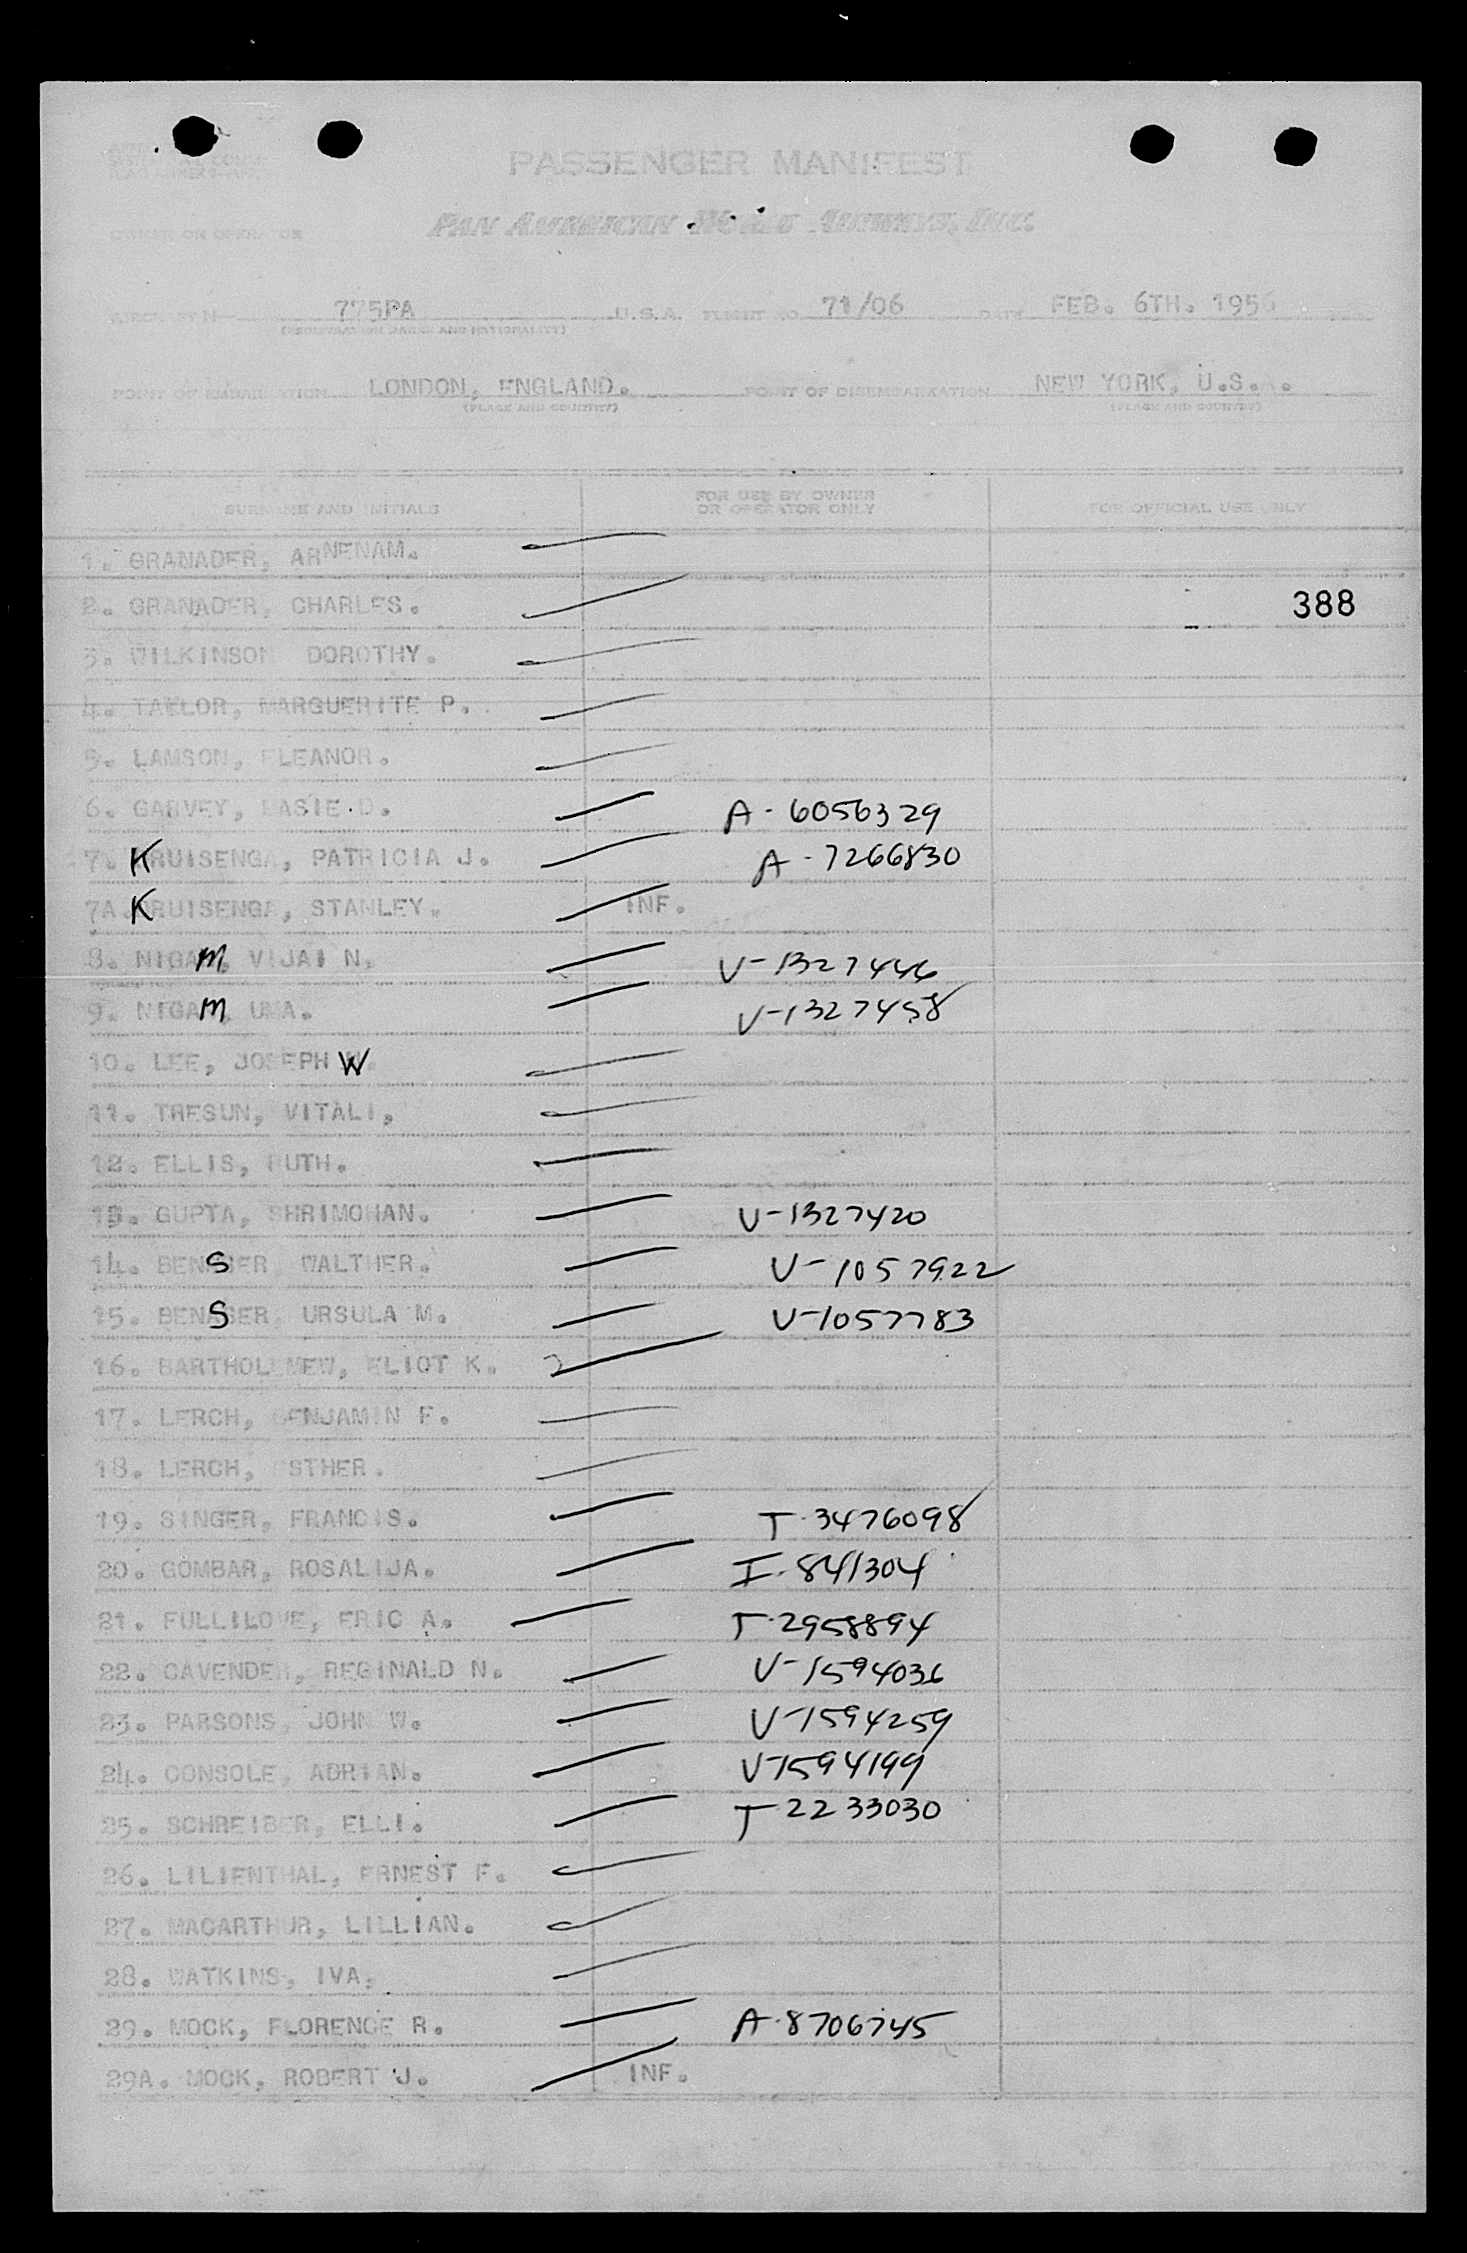 PASSENGER MANIFEST
OWNER OR OPERATOR PAN AMERICAN WORLD AIRWAYS, INC.
775PA U.S.A. FLIGHT NO. 71/06 DATE FEB. 6TH. 1956
POINT OF EMBARKATION LONDON, ENGLAND. POINT OF DISEMBARKATION NEW YORK, U.S.A.
(PLACE AND COUNTRY) (PLACE AND COUNTRY)
SURNAME AND INITIALS FOR USE BY OWNER OR OPERATOR ONLY FOR OFFICIAL USE ONLY
1. GRANADER, ARNENAM.
2. GRANADER, CHARLES. 388
3. WILKINSON DOROTHY.
4. TAELOR, MARGUERITE P.
5. LAMSON, ELEANOR.
6. GARVEY, MASIE D. A-6056329
7. KRUISENGA, PATRICIA J. A-7266830
7A KRUISENGA, STANLEY. INF.
8. NIGAM, VIJAI N. V-1327446
9. NIGAM, UMA. V-1327458
10. LEE, JOSEPH W.
11. TRESUN, VITALI,
12. ELLIS, RUTH.
13. GUPTA, SHRIMOHAN. V-1327420
14. BENSSER, WALTHER. V-1057922
15. BENSSER, URSULA M. V-1057783
16. BARTHOLEMEW, ELIOT K.
17. LERCH, BENJAMIN F.
18. LERCH, ESTHER.
19. SINGER, FRANCIS. T-3476098
20. GOMBAR, ROSALIJA. I-841304
21. FULLILOVE, ERIC A. T-2958894
22. CAVENDER, REGINALD N. V-1594036
23. PARSONS, JOHN W. V-1594259
24. CONSOLE, ADRIAN. V-1594199
25. SCHREIBER, ELLI. T-2233030
26. LILIENTHAL, ERNEST F.
27. MACARTHUR, LILLIAN.
28. WATKINS, IVA.
29. MOCK, FLORENCE R. A-8706745
29A. MOCK, ROBERT J. INF.